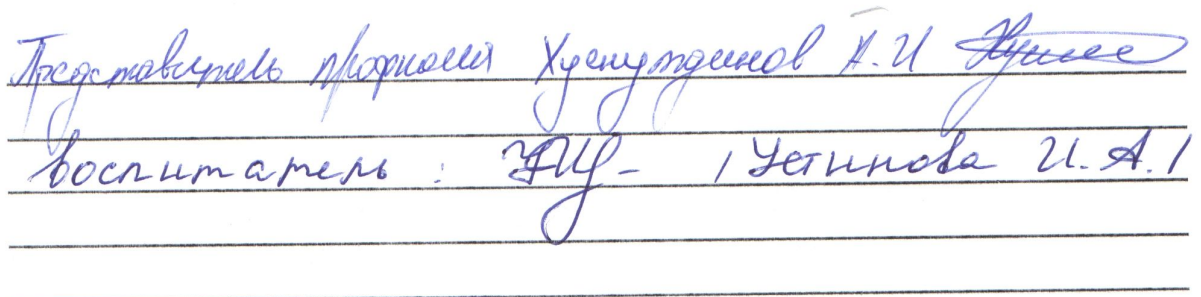 Представитель профкома Хуснутдинов А.И
Воспитатель : / Устинова И. А. /